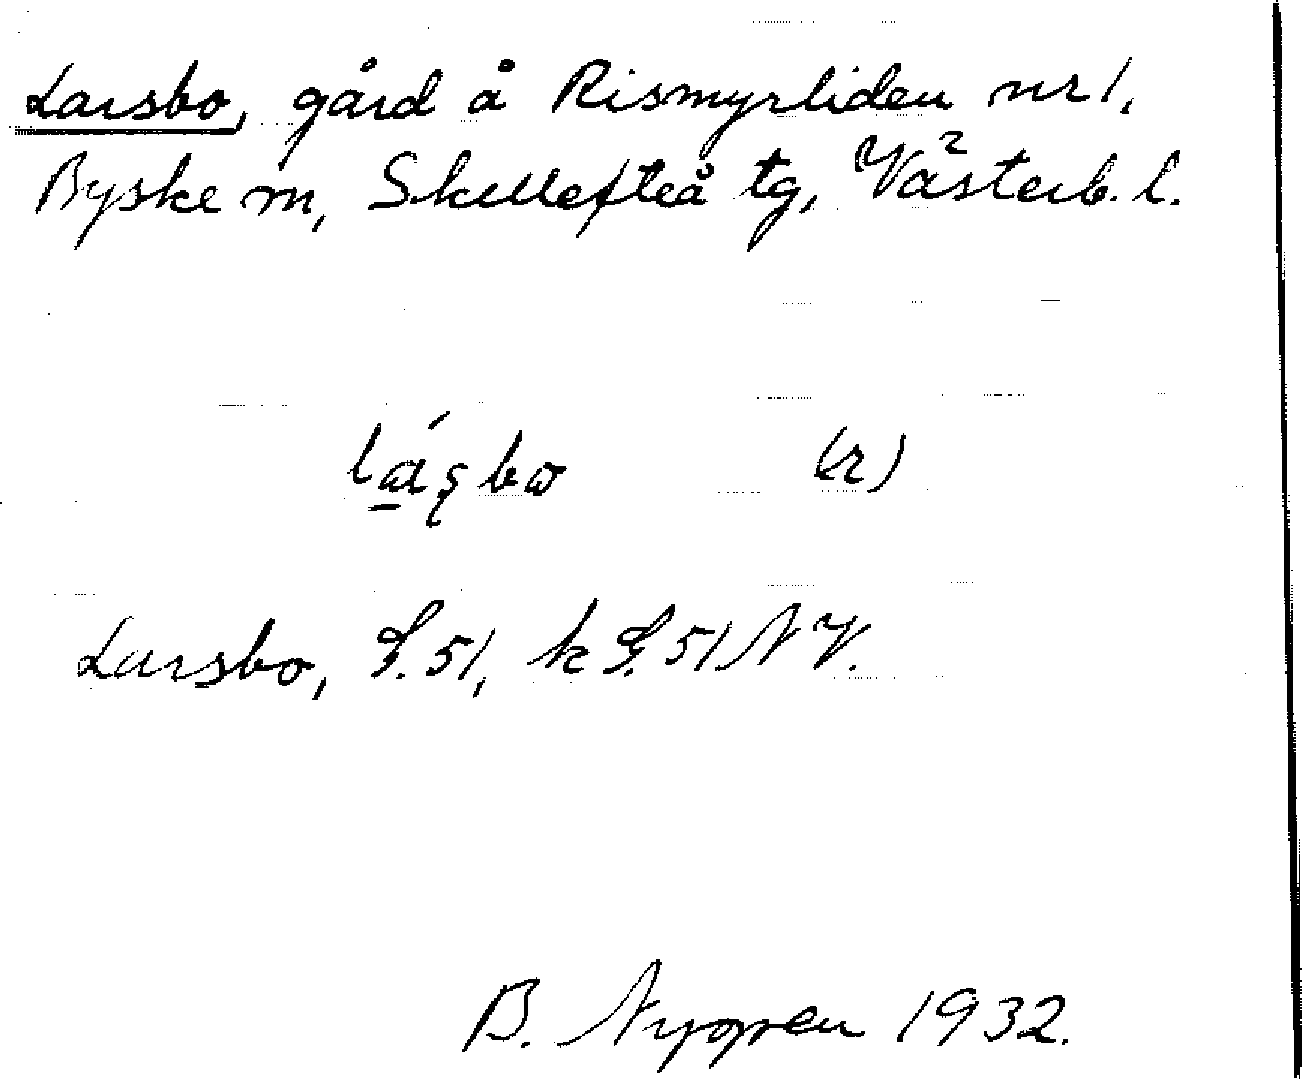 Larsbo, gård å Rismyrliden nr 1,
Byske sn, Skellefteå tg, Västerb. l.
(r)
Larsbo, S. 51, k S. 51 NV.
B. 1932.